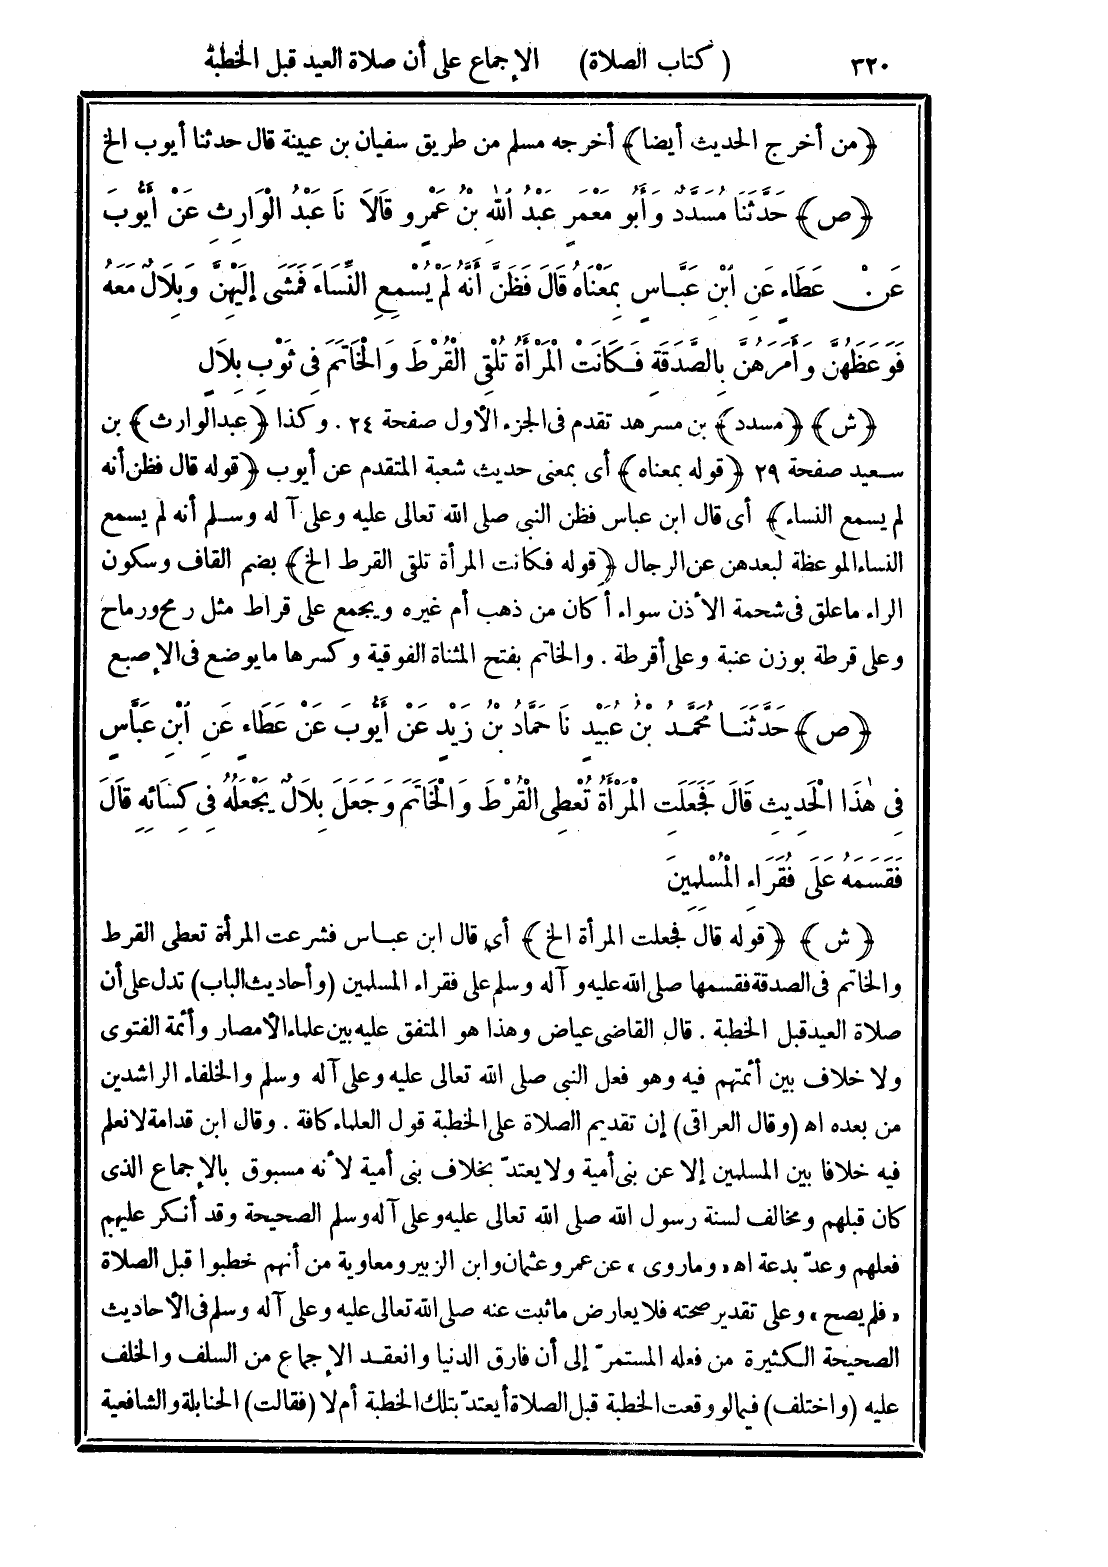 ٣٢٠ (كتاب الصلاة) الإجماع على أن صلاة العيد قبل الخطبة
﴿من أخرج الحديث أيضا﴾ أخرجه مسلم من طريق سفيان بن عيينة قال حدثنا أيوب الخ
﴿ص﴾ حَدَّثَنَا مُسَدَّدٌ وَأَبُو مَعْمَرٍ عَبْدُ اللهِ بْنُ عَمْرٍو قَالَا نَا عَبْدُ الْوَارِثِ عَنْ أَيُّوبَ
عَنْ عَطَاءٍ عَنِ ابْنِ عَبَّاسٍ بِمَعْنَاهُ قَالَ فَظَنَّ أَنَّهُ لَمْ يُسْمِعِ النِّسَاءَ فَمَشَى إِلَيْهِنَّ وَبِلَالٌ مَعَهُ
فَوَعَظَهُنَّ وَأَمَرَهُنَّ بِالصَّدَقَةِ فَكَانَتْ الْمَرْأَةُ تُلْقِي الْقُرْطَ وَالْخَاتَمَ فِى ثَوْبِ بِلَالٍ
﴿ش﴾ ﴿مسدد﴾ بن مسرهد تقدم فى الجزء الأول صفحة ٢٤ . وكذا ﴿عبدالوارث﴾ بن
سعيد صفحة ٢٩ ﴿قوله بمعناه﴾ أى بمعنى حديث شعبة المتقدم عن أيوب ﴿قوله قال فظن أنه
لم يسمع النساء﴾ أى قال ابن عباس فظن النبى صلى الله تعالى عليه وعلى آ له وسلم أنه لم يسمع
النساء الموعظة لبعدهن عن الرجال ﴿قوله فكانت المرأة تلقى القرط الخ﴾ بضم القاف وسكون
الراء ماعلق فى شحمة الأذن سواء أكان من ذهب أم غيره ويجمع على قراط مثل رمح ورماح
وعلى قرطة بوزن عنبة وعلى أقرطة . والخاتم بفتح المثناة الفوقية وكسرها مايوضع فى الإصبع
﴿ص﴾ حَدَّثَنَا مُحَمَّدُ بْنُ عُبَيْدٍ نَا حَمَّادُ بْنُ زَيْدٍ عَنْ أَيُّوبَ عَنْ عَطَاءٍ عَنِ ابْنِ عَبَّاسٍ
فِى هٰذَا الْحَدِيثِ قَالَ فَجَعَلَتِ الْمَرْأَةُ تُعْطِى الْقُرْطَ وَالْخَاتَمَ وَجَعَلَ بِلَالٌ يَجْعَلُهُ فِى كِسَائِهِ قَالَ
فَقَسَمَهُ عَلَى فُقَرَاءِ الْمُسْلِمِينَ
﴿ش﴾ ﴿قوله قال فجعلت المرأة الخ﴾ أى قال ابن عباس فشرعت المرأة تعطى القرط
والخاتم فى الصدقة فقسمها صلى الله عليه و آله وسلم على فقراء المسلمين (وأحاديث الباب) تدل على أن
صلاة العيد قبل الخطبة . قال القاضى عياض وهذا هو المتفق عليه بين علماء الأمصار وأئمة الفتوى
ولا خلاف بين أئمتهم فيه وهو فعل النبى صلى الله تعالى عليه وعلى آله وسلم والخلفاء الراشدين
من بعده اه (وقال العراقى) إن تقديم الصلاة على الخطبة قول العلماء كافة . وقال ابن قدامة لا نعلم
فيه خلافا بين المسلمين إلا عن بنى أمية ولا يعتدّ بخلاف بنى أمية لأنه مسبوق بالإجماع الذى
كان قبلهم ومخالف لسنة رسول الله صلى الله تعالى عليه وعلى آله وسلم الصحيحة وقد أنكر عليهم
فعلهم وعدّ بدعة اه «وماروى» عن عمر وعثمان وابن الزبير ومعاوية من أنهم خطبوا قبل الصلاة
«فلم يصح» وعلى تقدير صحته فلا يعارض ماثبت عنه صلى الله تعالى عليه وعلى آله وسلم فى الأحاديث
الصحيحة الكثيرة من فعله المستمرّ إلى أن فارق الدنيا وانعقد الإجماع من السلف والخلف
عليه (واختلف) فيما لو وقعت الخطبة قبل الصلاة أيعتدّ بتلك الخطبة أم لا (فقالت) الحنابلة والشافعية